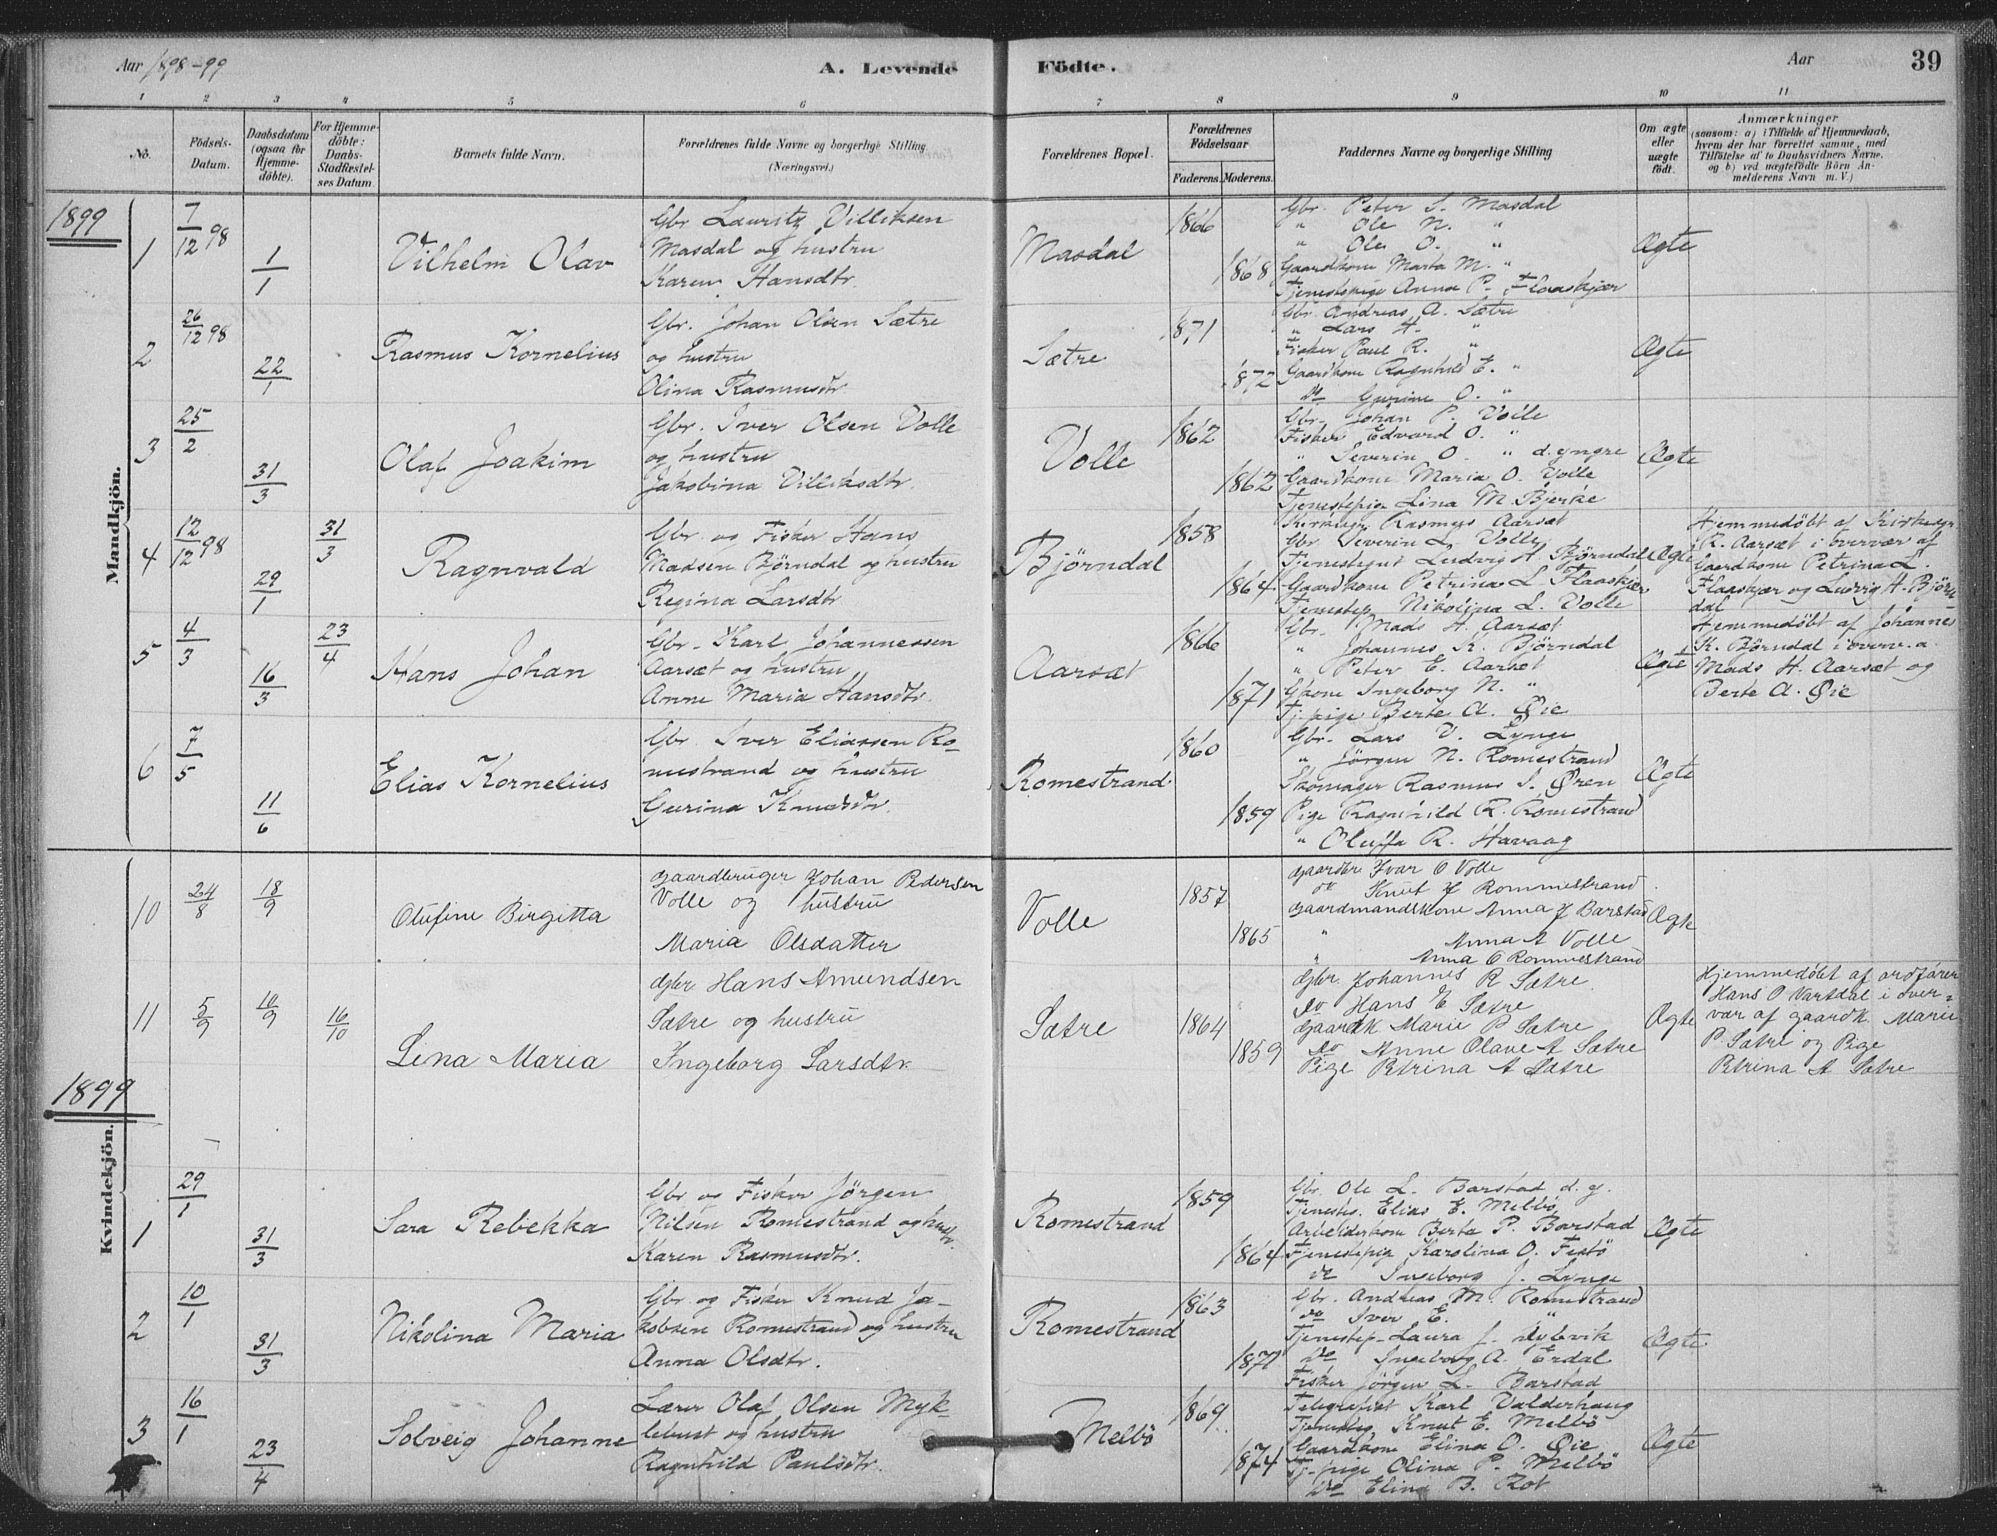 Aar 1898-99
A. Levende Födte.
Aar
39
1 2 3 4 5 6 7 8 9 10 11
No.
Födsels-Datum.
Daabsdatum (ogsaa for Hjemme-döbte).
For Hjemme-döbte: Daabs-Stadfæstel-ses Datum.
Barnets fulde Navn.
Forældrenes fulde Navne og borgerlige Stilling (Næringsvei.)
Forældrenes Bopæl.
Forældrenes Födselsaar
Faderens. Moderens.
Faddernes Navne og borgerlige Stilling
Om ægte eller uægte födt.
Anmærkninger
(saasom: a) i Tilfælde af Hjemmedaab,
hvem der har forrettet samme, med
Tilföielse af to Daabsvidners Navne.
og b) ved uægtefödte Börn An-
melderens Navn m. V.)
1899
Mandkjön.
1
7/12 98
1/1
Vilhelm Olav
Gbr Lauritz Villiksen
Masdal og hustru
Karen Hansdtr.
Masdal
1866
1868
Gbr. Peter S. Masdal
" Ole N. "
" Ole O. "
Gaardkone Marta M. "
Tjenestepige Anna P. Flaaskjær
Ægte
2
26/12 98
22/1
Rasmus Kornelius
Gbr. Johan Olsen Sætre
og hustru
Olina Rasmusdtr
Sætre
1871
1872
Gbr. Andreas A. Sætre
" Lars H. "
Fisker Paul R. "
Gaardkone Ragnhild E. "
do Gurine O. "
Ægte
3
25/2
31/3
Olaf Joakim
Gbr. Iver Olsen Volle
og hustru
Jakobina Villiksdtr.
Volle
1862
1862
Gbr. Johan P. Volle
Fisker Edvard O. "
" Severin O. " d. yngre
Gaardkone Maria O. Volle
Tjenestepige Lina M. Bjerke
Ægte
4
12/12 98
29/1
31/3
Ragnvald
Gbr. og Fisker Hans
Madsen Björndal og hustru
Regina Larsdtr.
Björndal
1858
1864
Kirkesgr. Rasmus Aarsæt
Gbr. Severin L. Volle
Tjenestegut Ludvig H. Björndal
Gaardkone Petrina L. Flaaskjær
Tjenestep. Nikolina L. Volle
Ægte
Hjemmedøbt af Kirkesgr.
R. Aarsæt i overvær af
Gaardkone Petrina L.
Flaaskjær og Ludvig H. Björn-
dal
5
4/3
16/3
23/4
Hans Johan
Gbr. Karl Johannessen
Aarsæt og hustru
Anne Maria Hansdtr.
Aarsæt
1866
1871
Gbr. Mads H. Aarsæt
" Johannes K. Björndal
" Peter E. Aarsæt
Gkone Ingeborg N. "
Tj.pige Berte A. Øie
Ægte
Hjemmedøbt af Johannes
K. Björndal i overv. a.
Mads H. Aarsæt og
Berte A. Øie
6
7/5
11/6
Elias Kornelius
Gbr. Iver Eliassen Ro-
mestrand og hustru
Gurina Knudsdtr.
Romestrand
1860
1859
Gbr. Lars V. Lynge
" Jörgen N. Romestrand
Skomager Rasmus S. Øren
Pige Ragnhild R. Romestrand
" Oluffa R. Havaag
Ægte
10
24/8
18/9
Olufine Birgitta
Gaardbruger Johan Pedersen
Volle og hustru
Maria Olsdatter
Volle
1857
1865
Gaardbr Ivar O Volle
do Knut J Rommestrand
Gaardmandskone Anna J Barstad
" Anna A Volle
" Anna O Rommestrand
Ægte
11
5/9
10/9
16/10
Lina Maria
Gbr. Hans Amundsen
Sætre og hustru
Ingeborg Larsdtr.
Sætre
1864
1859
Gbr Johannes R Sætre
do Hans E Sætre
Gaardk Marie P Sætre
do Anne Olave A Sætre
Pige Petrina A Sætre
Ægte
Hjemmedöbt af ordfører
Hans O Vartdal i over-
vær af gaardk. Marie
P. Sætre og Pige
Petrina A Sætre
1899
Kvindekjön.
1
29/1
31/3
Sara Rebekka
Gbr og Fisker Jörgen
Nilsen Romestrand og hustr.
Karen Rasmusdtr.
Romestrand
1859
1864
Gbr. Ole L. Barstad d. y.
Tjenestes. Elias E. Melbö
Arbeiderkone Berta P. Barstad
Tjenestepig Karolina O. Festö
do Ingeborg J. Lynge
Ægte
2
10/1
31/3
Nikolina Maria
Gbr og Fisker Knud Ja-
kobsen Romestrand og hustru
Anna Olsdtr.
Romestrand
1863
1871
Gbr. Andreas M. Romestrand
do Iver E. "
Tjenestep. Laura J. Dybvik
do Ingeborg A. Erdal
Fisker Jørgen L. Barstad
Ægte
3
16/1
23/4
Solveig Johanne
Lærer Olaf Olsen Myk-
lebust og hustru
Ragnhild Paulsdtr.
Melbö
1869
1874
Telegrafist Karl Valderhaug
Knut E. Melbö
Gaardkone Elina O. Øie
Tj.pige Olina P. Melbö
do Elina B. Rot
Ægte